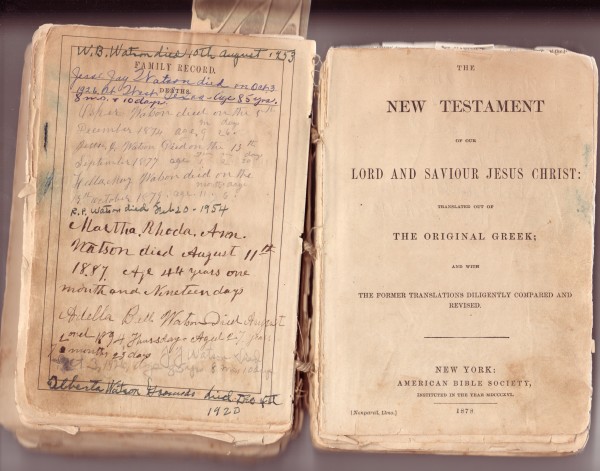 W.B. Watson died 10th August 1933
FAMILY RECORD.
Jesse Jay Watson died on Oct 3
DEATHS.
1926 At West Texas - Age 85 yrs.
8 mo. + 10 days
Watson died on the 5th
December 1874 age
Watson Died on the 13th
September 1877 age
May Watson died on the
13th October 1879 age 11
R.P. Watson died Feb 20 - 1954
Martha, Rhoda, Ann.
Watson died August 11th
1887. Age 44 years one
month and Nineteen days
Adella Beth Watson Died August
2nd 1894 Thursday Aged 27 years
months 23 days Watson died
Alberta Watson died Dec 4th
1920
THE
NEW TESTAMENT
OF OUR
LORD AND SAVIOUR JESUS CHRIST:
TRANSLATED OUT OF
THE ORIGINAL GREEK;
AND WITH
THE FORMER TRANSLATIONS DILIGENTLY COMPARED AND
REVISED.
NEW YORK:
AMERICAN BIBLE SOCIETY,
INSTITUTED IN THE YEAR MDCCCXVI.
1878
[Nonpareil, 12mo.]